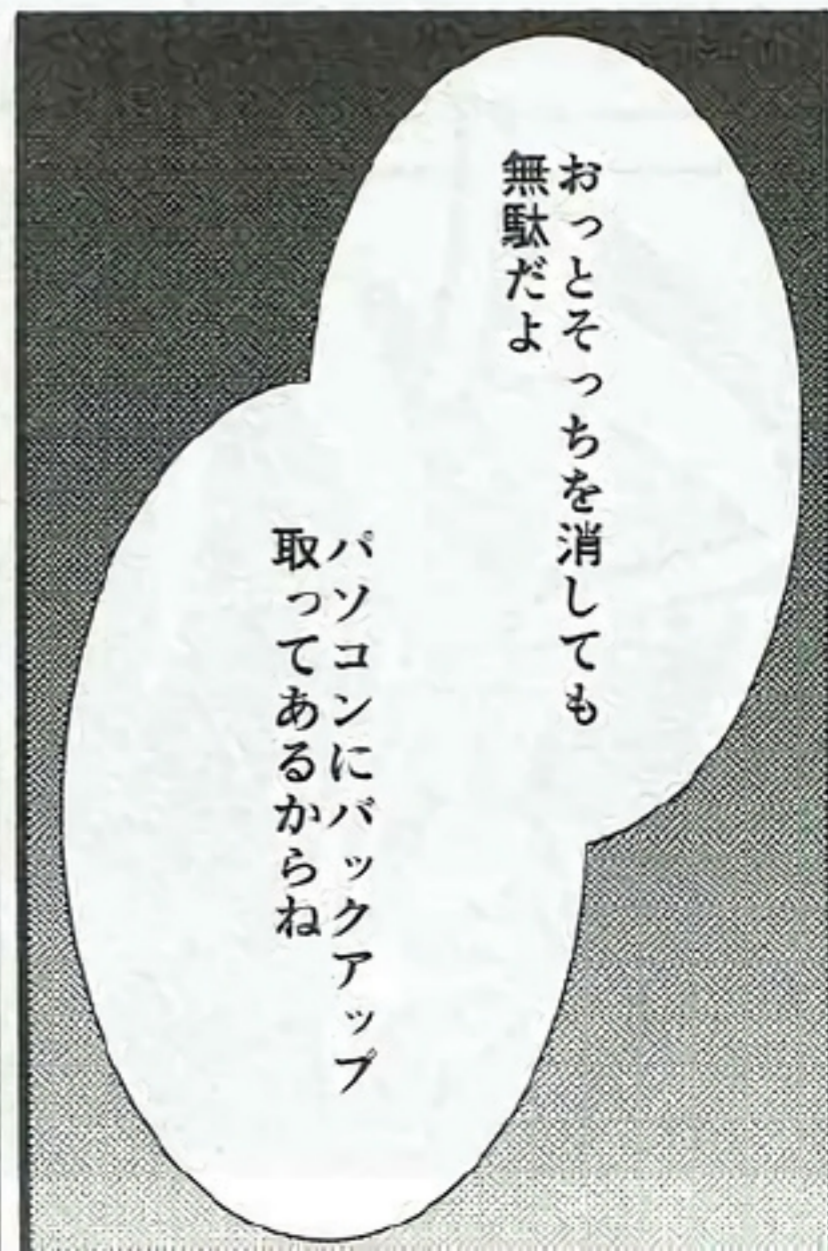 おっとそっちを消しても
無駄だよ
パソコンにバックアップ
取ってあるからね